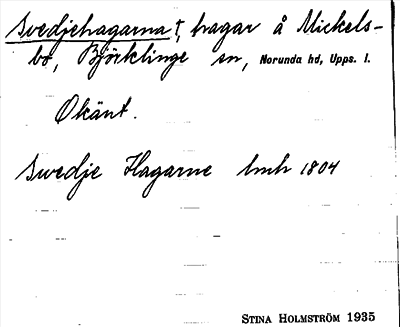 Svedjehagarna †, hagar å Mickels-
bo, Björklinge sn, Norunda hd, Upps. l.
Okänt.
Swedje Hagarne lmh 1804
STINA HOLMSTRÖM 1935